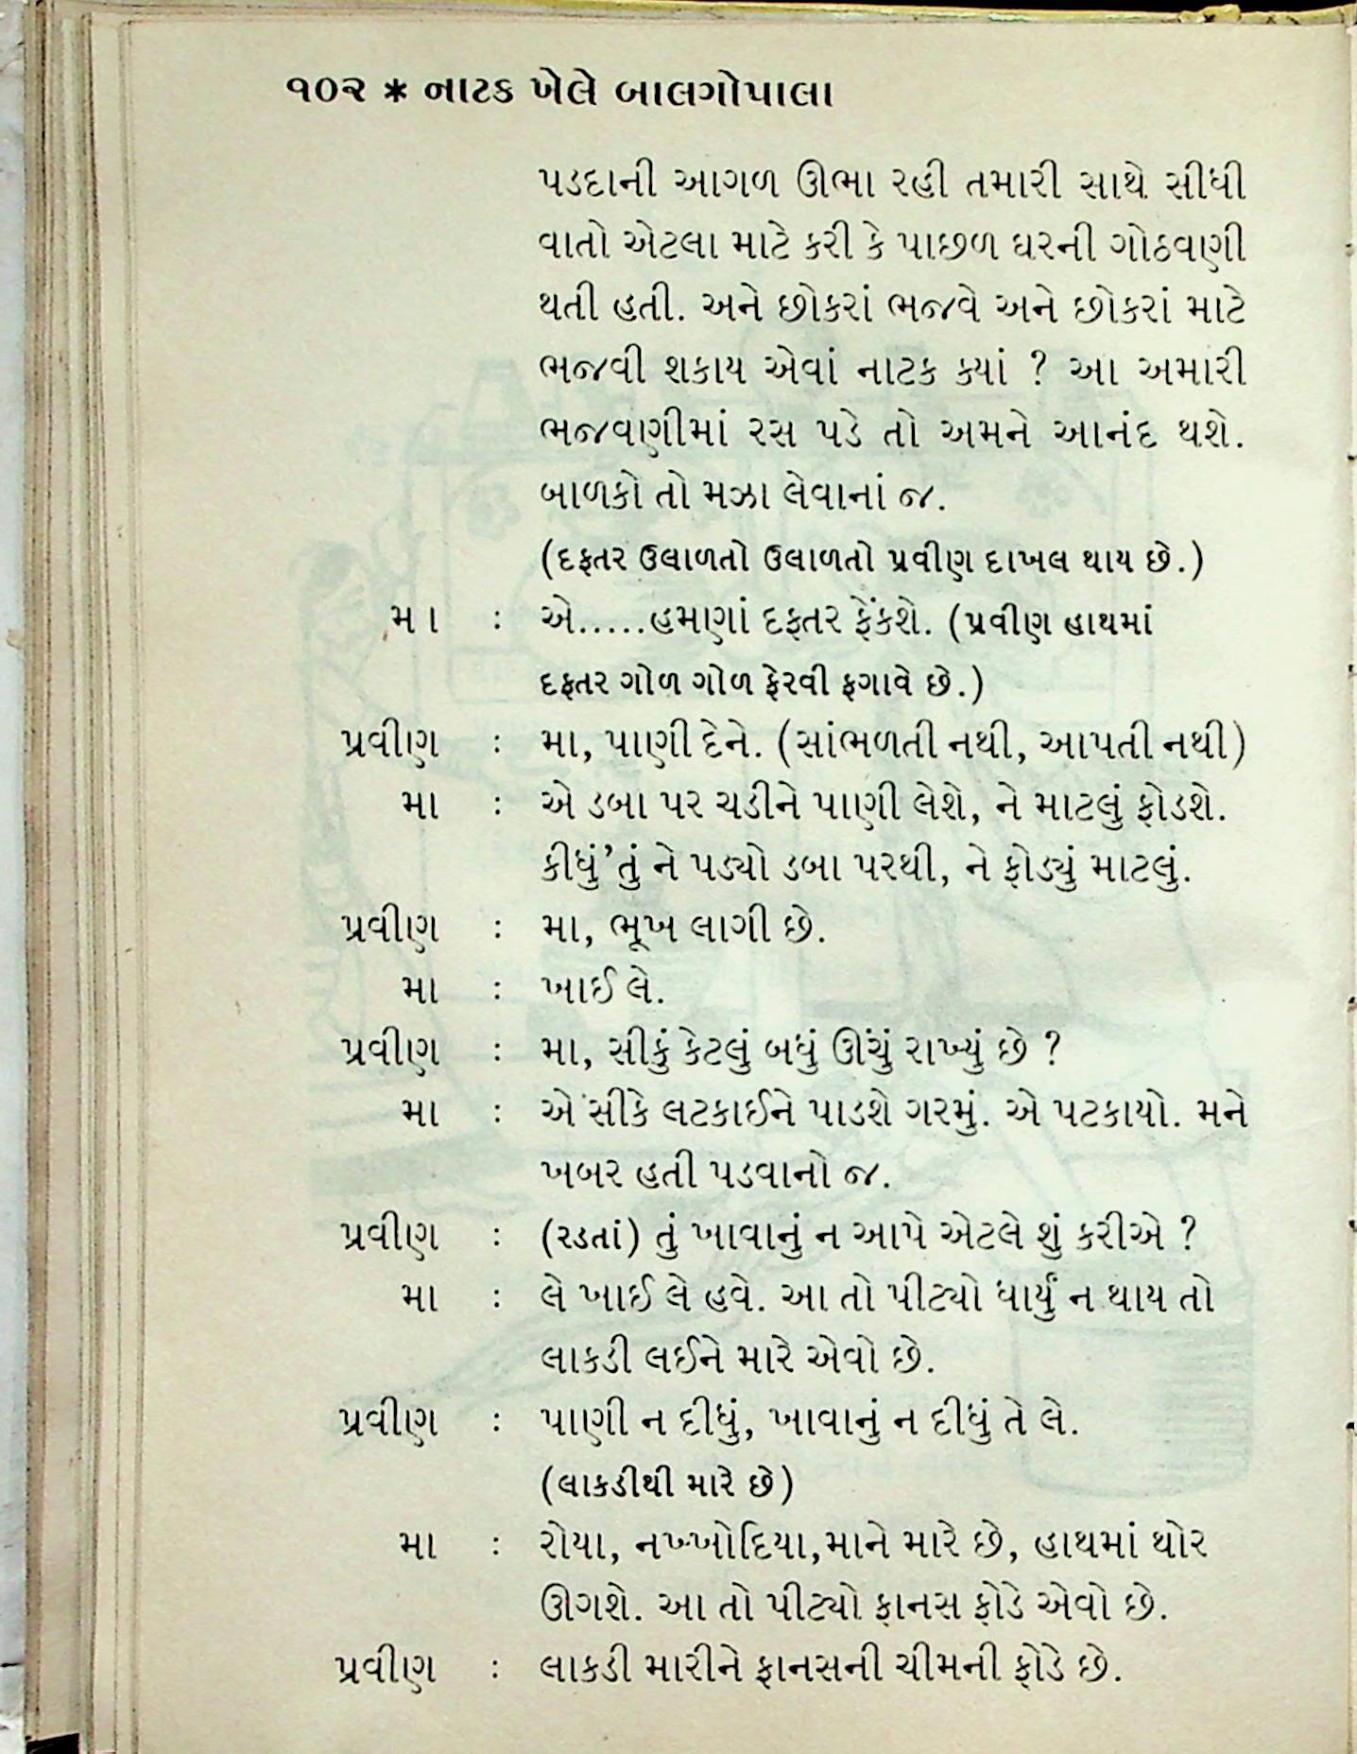 ૧૦૨ * નાટક ખેલે બાલગોપાલા
પડદાની આગળ ઊભા રહી તમારી સાથે સીધી
વાતો એટલા માટે કરી કે પાછળ ઘરની ગોઠવણી
થતી હતી. અને છોકરાં ભજવે અને છોકરાં માટે
ભજવી શકાય એવાં નાટક ક્યાં ? આ અમારી
ભજવણીમાં રસ પડે તો અમને આનંદ થશે.
બાળકો તો મઝા લેવાનાં જ.
(દફતર ઉલાળતો ઉલાળતો પ્રવીણ દાખલ થાય છે.)
મા : એ.....હમણાં દફતર ફેંકશે. (પ્રવીણ હાથમાં
દફતર ગોળ ગોળ ફેરવી ફગાવે છે.)
પ્રવીણ : મા, પાણી દેને. (સાંભળતી નથી, આપતી નથી)
મા : એ ડબા પર ચડીને પાણી લેશે, ને માટલું ફોડશે.
કીધું'તું ને પડ્યો ડબા પરથી, ને ફોડ્યું માટલું.
પ્રવીણ : મા, ભૂખ લાગી છે.
મા : ખાઈ લે.
પ્રવીણ : મા, સીકું કેટલું બધું ઊંચું રાખ્યું છે ?
મા : એ સીકે લટકાઈને પાડશે ગરમું. એ પટકાયો. મને
ખબર હતી પડવાનો જ.
પ્રવીણ : (રડતાં) તું ખાવાનું ન આપે એટલે શું કરીએ ?
મા : લે ખાઈ લે હવે. આ તો પીટ્યો ધાર્યું ન થાય તો
લાકડી લઈને મારે એવો છે.
પ્રવીણ : પાણી ન દીધું, ખાવાનું ન દીધું તે લે.
(લાકડીથી મારે છે)
મા : રોયા, નખ્ખોદિયા,માને મારે છે, હાથમાં થોર
ઊગશે. આ તો પીટ્યો ફાનસ ફોડે એવો છે.
પ્રવીણ : લાકડી મારીને ફાનસની ચીમની ફોડે છે.